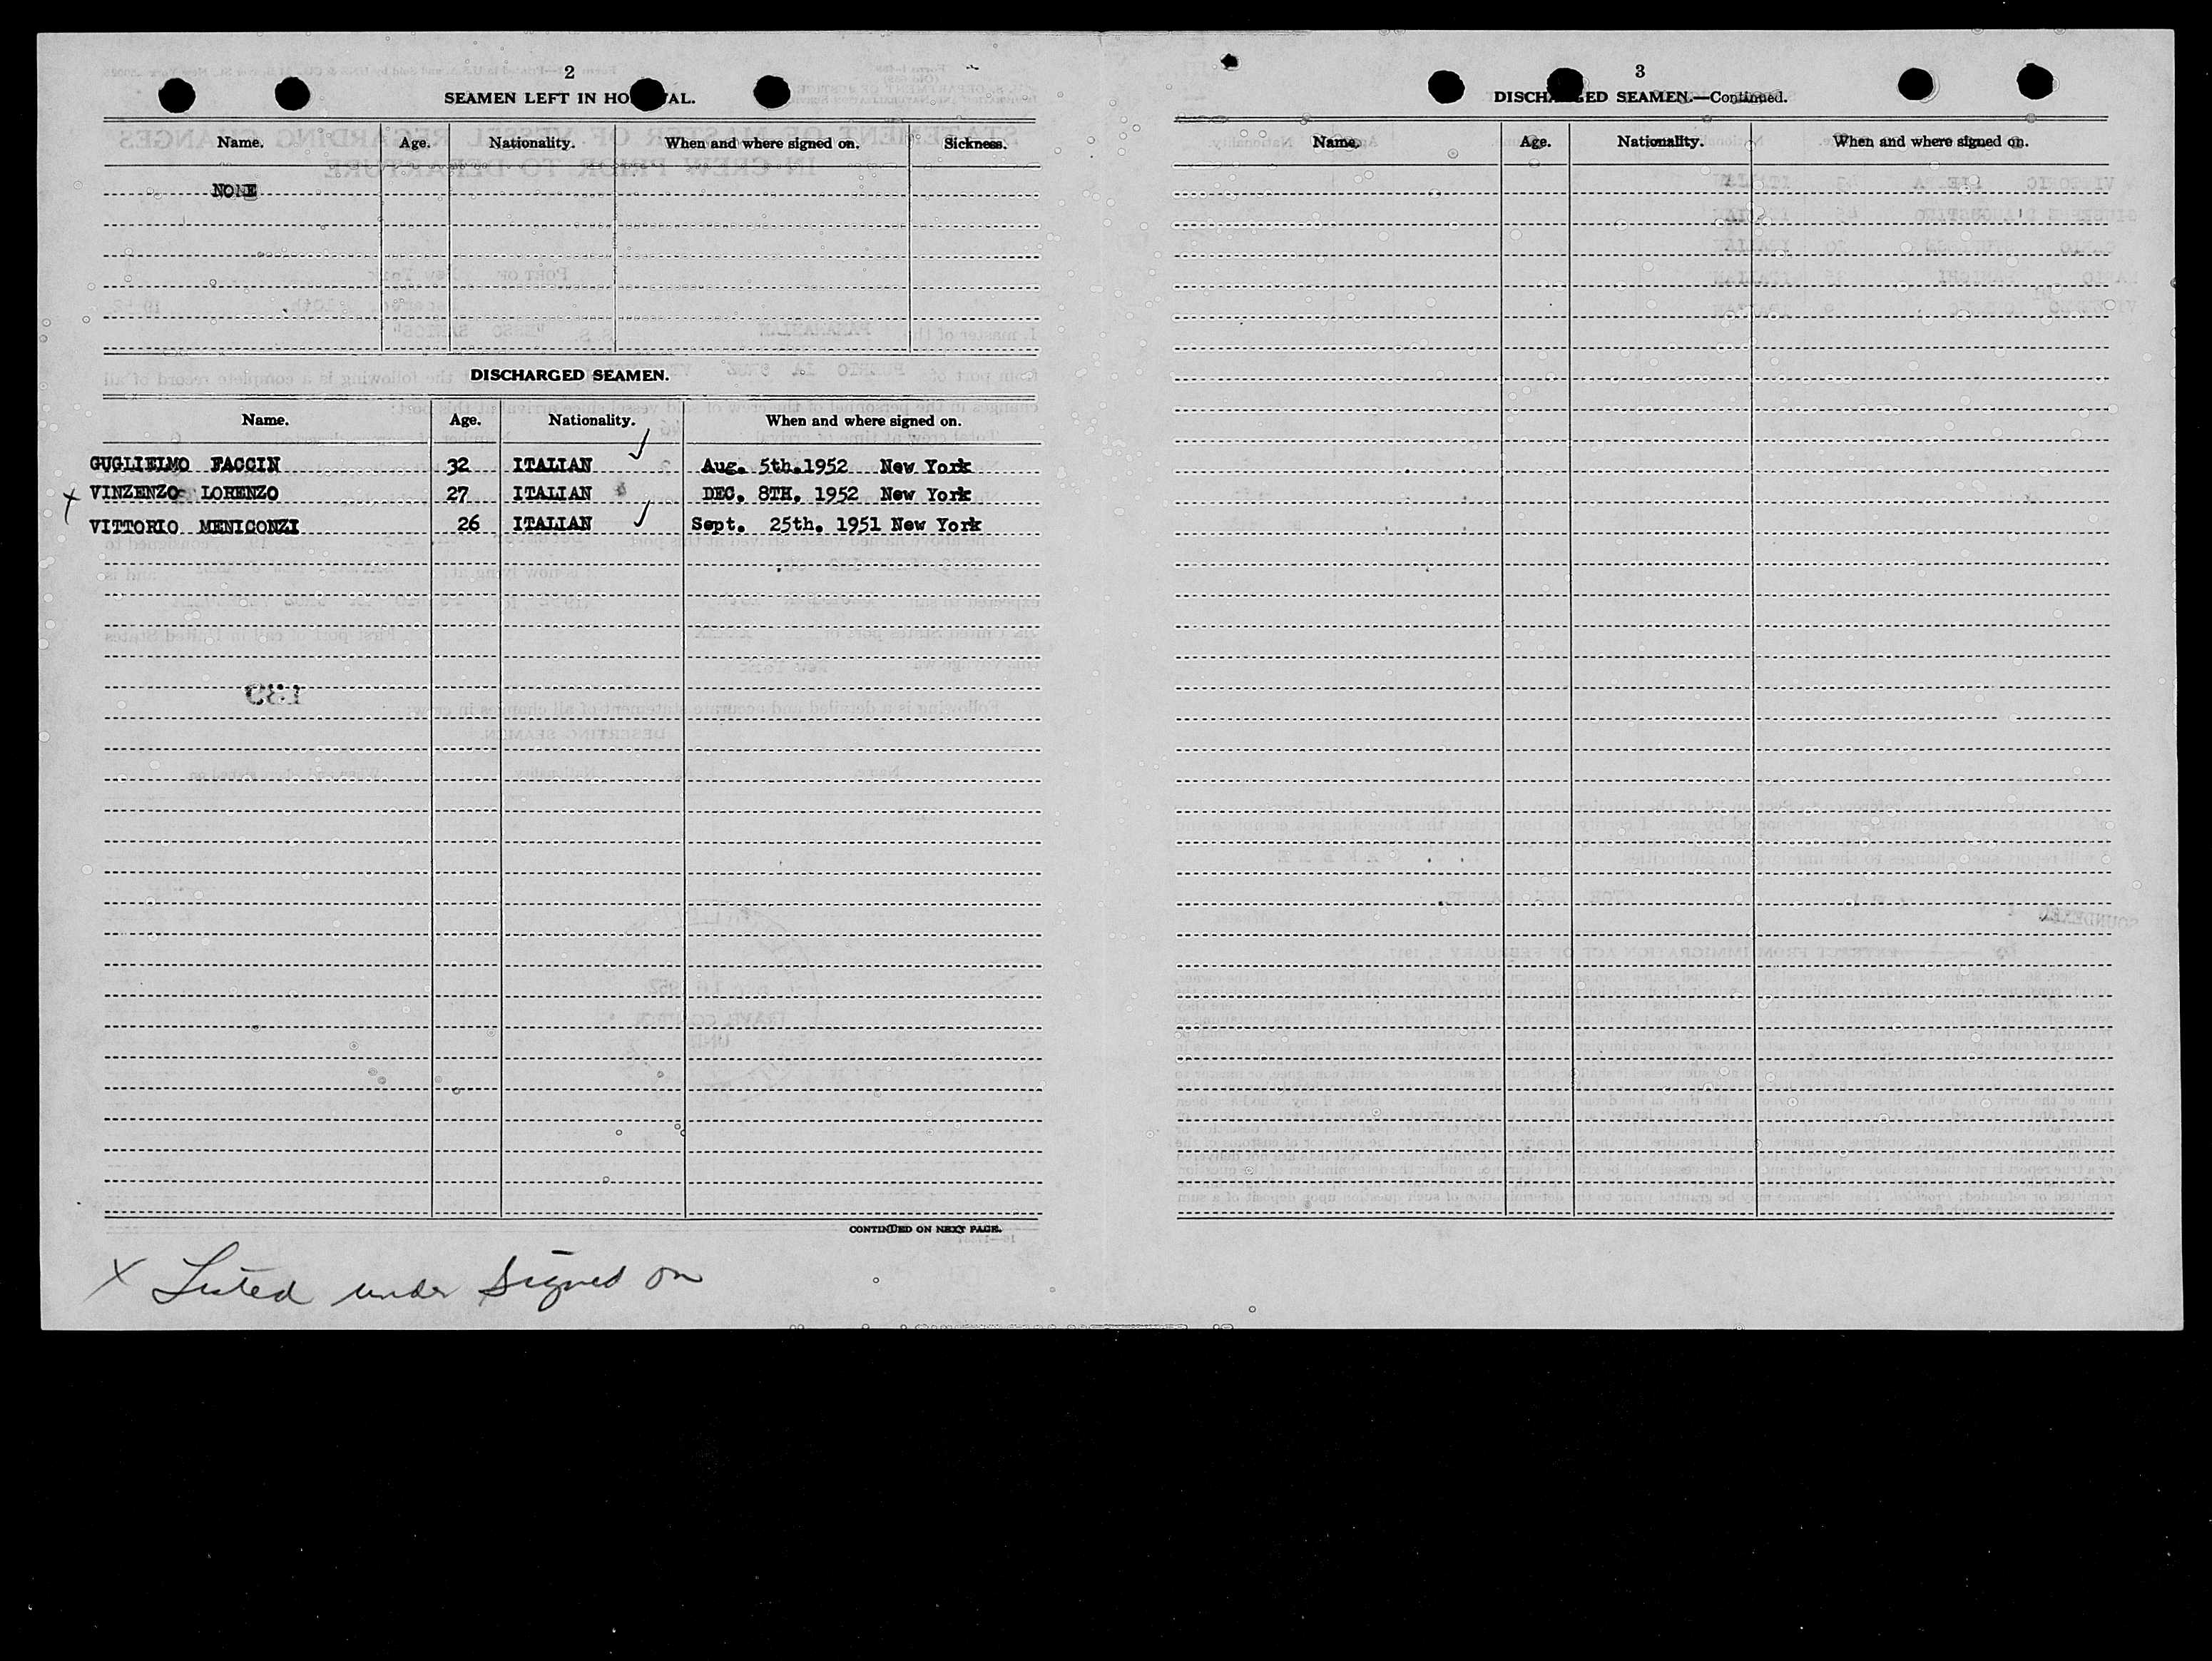 2
SEAMEN LEFT IN HO AL.
Name. Age. Nationality. When and where signed on. Sickness.
NONE
DISCHARGED SEAMEN.
Name. Age. Nationality. When and where signed on.
GUGLIELMO FACCIN 32 ITALIAN Aug. 5th.1952 New York
x VINZENZO LORENZO 27 ITALIAN DEC. 8TH. 1952 New York
VITTORIO MENICONZI 26 ITALIAN Sept. 25th. 1951 New York
139
CONTINUED ON NEXT PAGE.
x Listed under signed on
3
DISCHARGED SEAMEN.—Continued.
Name. Age. Nationality. When and where signed on.